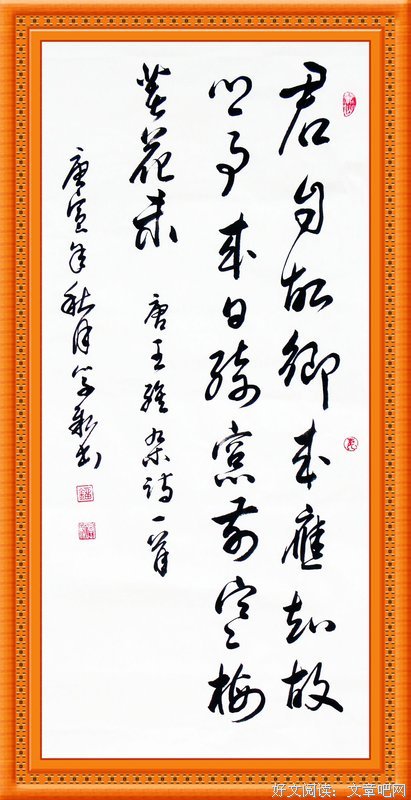 君自故鄉来應知故
鄉事来日綺窓前寒梅
著花未 唐王維雜诗一首
庚寅年秋月学书
好文阅读：文章吧网